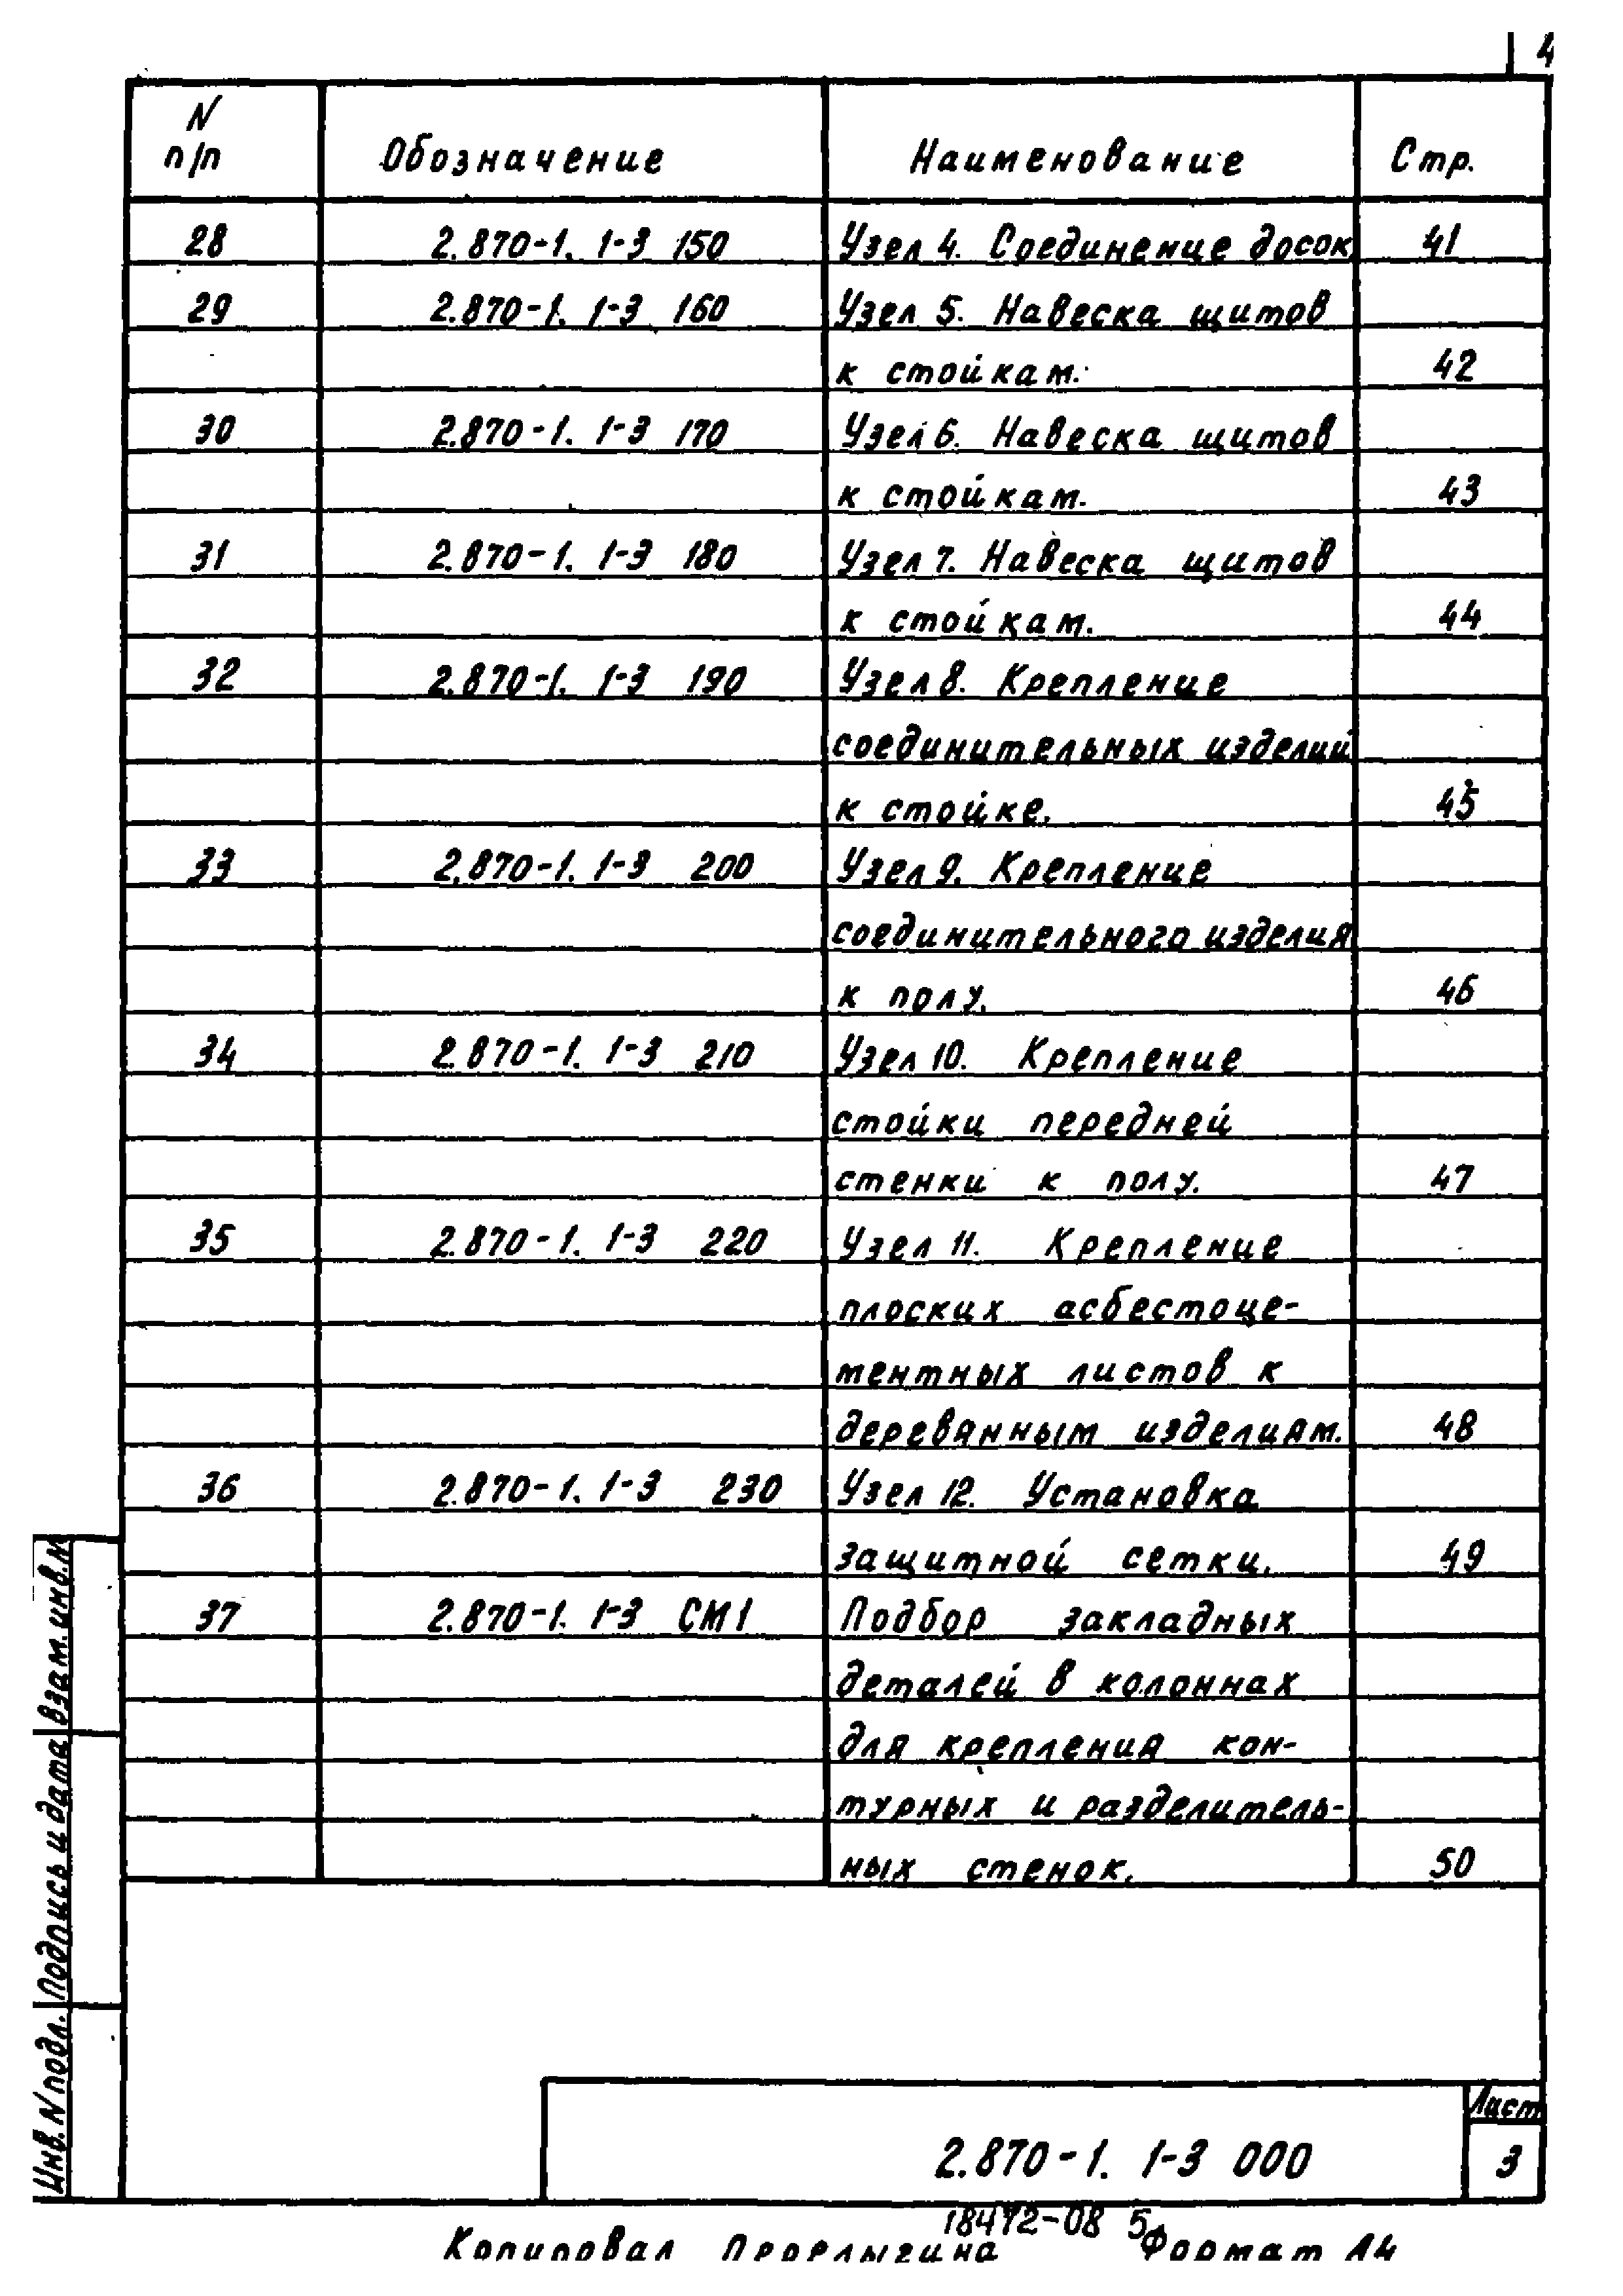 4
N
п/п Обозначение Наименование Стр.
28 2.870-1. 1-3 150 Узел 4. Соединение досок 41
29 2.870-1. 1-3 160 Узел 5. Навеска щитов
к стойкам. 42
30 2.870-1. 1-3 170 Узел 6. Навеска щитов
к стойкам. 43
31 2.870-1. 1-3 180 Узел 7. Навеска щитов
к стойкам. 44
32 2.870-1. 1-3 190 Узел 8. Крепление
соединительных изделий
к стойке. 45
33 2.870-1. 1-3 200 Узел 9. Крепление
соединительного изделия
к полу. 46
34 2.870-1. 1-3 210 Узел 10. Крепление
стойки передней
стенки к полу. 47
35 2.870-1. 1-3 220 Узел 11. Крепление
плоских асбестоце-
ментных листов к
деревянным изделиям. 48
36 2.870-1. 1-3 230 Узел 12. Установка
защитной сетки. 49
37 2.870-1. 1-3 СМ1 Подбор закладных
деталей в колоннах
для крепления кон-
турных и разделитель-
ных стенок. 50
Взам. инв. N
Подпись и дата
Инв. N подл.
Лист
2.870-1. 1-3 000 3
18472-08 5
Копировал Формат А4